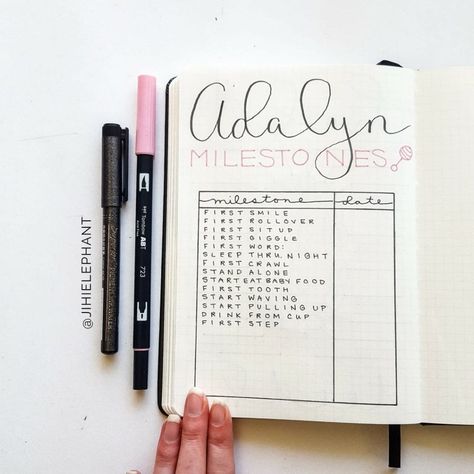 Adalyn
MILESTONES
milestone date
FIRST SMILE
FIRST ROLLOVER
FIRST SIT UP
FIRST GIGGLE
FIRST WORD:
SLEEP THRU NIGHT
FIRST CRAWL
STAND ALONE
START EAT BABY FOOD
FIRST TOOTH
START WAVING
START PULLING UP
DRINK FROM CUP
FIRST STEP
@JIHIELEPHANT
Tombow
ABT
723